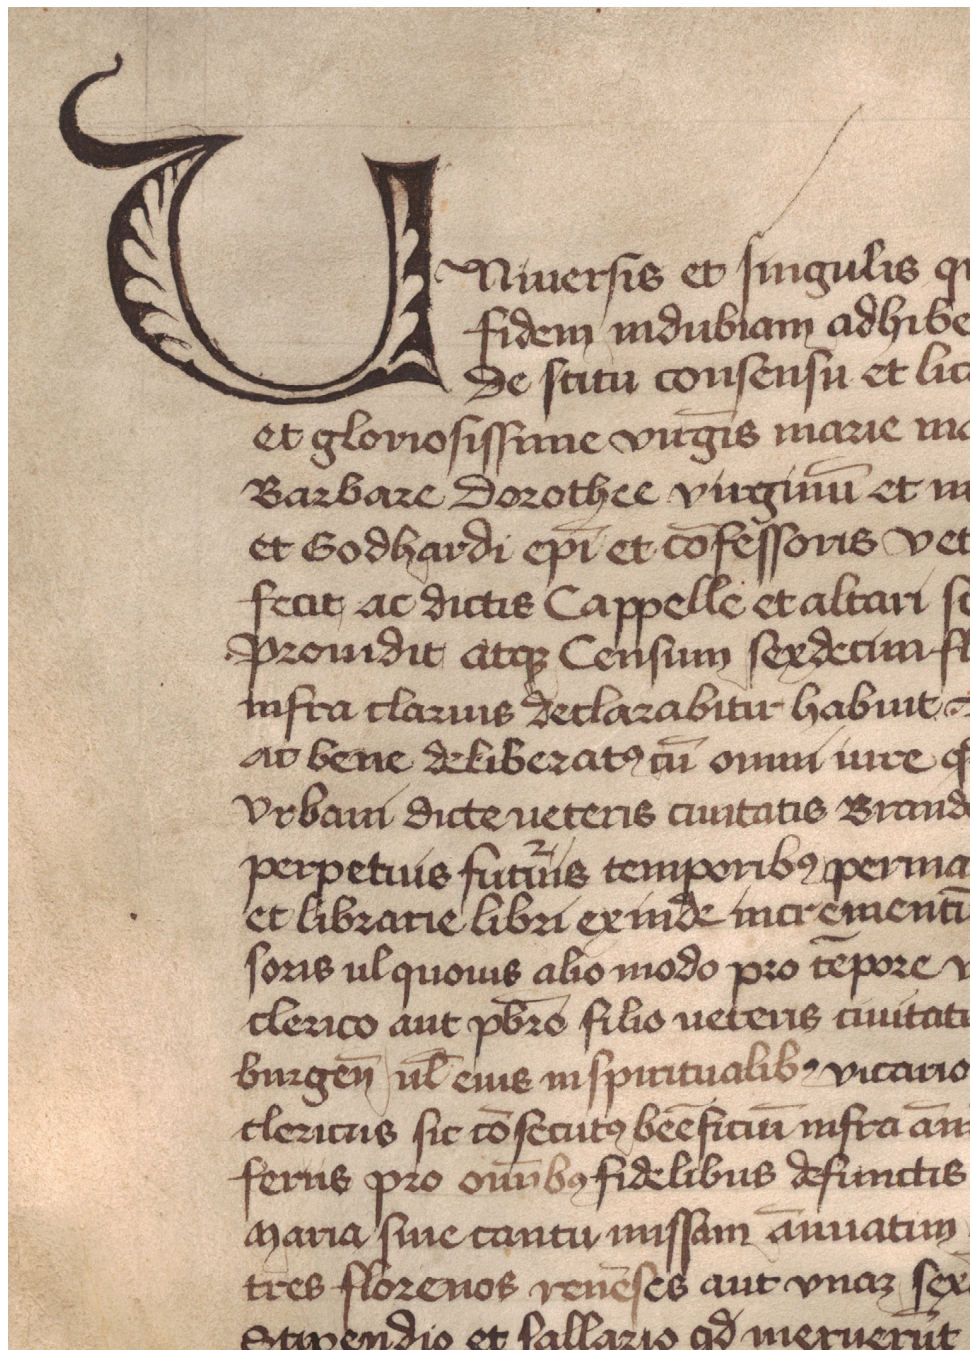 Universis et singulis q
fidem indubiam adhibe
De scitu consensu et lic
et gloriosissime virgīs marie ma
Barbare Dorothee virginū et m
et Godhardi epī et cōfessoris vet
fecit ac dictis Cappelle et altari se
Prouidit atqꝫ Censum sexdecim fl
infra clarius declarabitur habuit
ac bene deliberatꝯ cū omni iure
Vrbani dicte ueteris ciuitatis Brand
perpetuis futuris temporibꝯ perma
et librarie libri exinde incrementū
soris ul quouis alio modo pro tēpore v
clerico aut pbr̄o filio ueteris ciuitati
burgen̄ ul̄ eius in spiritualibꝯ vicario
clericus sic cōsecutꝯ bēeficiū infra ān
feriis pro omībꝯ fidelibus defunctis
Maria siue cantu missam ānuatim
tres florenos renēses aut vnaꝫ sex
Stipendio et sallario qd̄ meruerūt